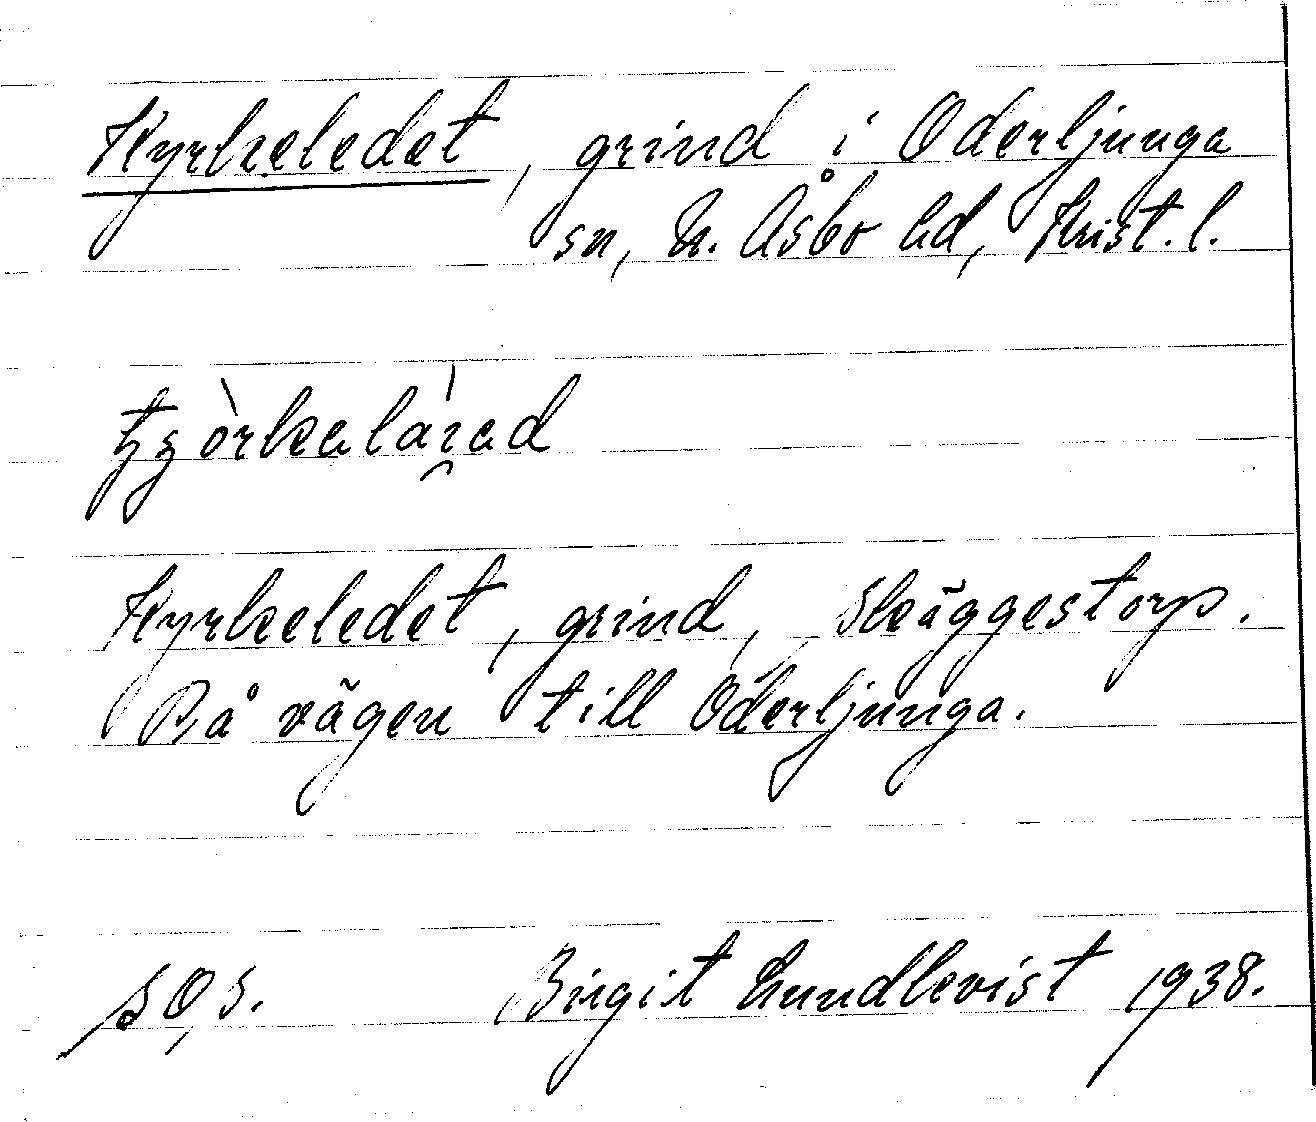 Kyrkeledet, grind i Oderljunga
sn, N. Åsbo hd, Krist. l.
Kyrkeledet, grind, Skäggestorp.
På vägen till Oderljunga.
Birgit Lundkvist 1938.